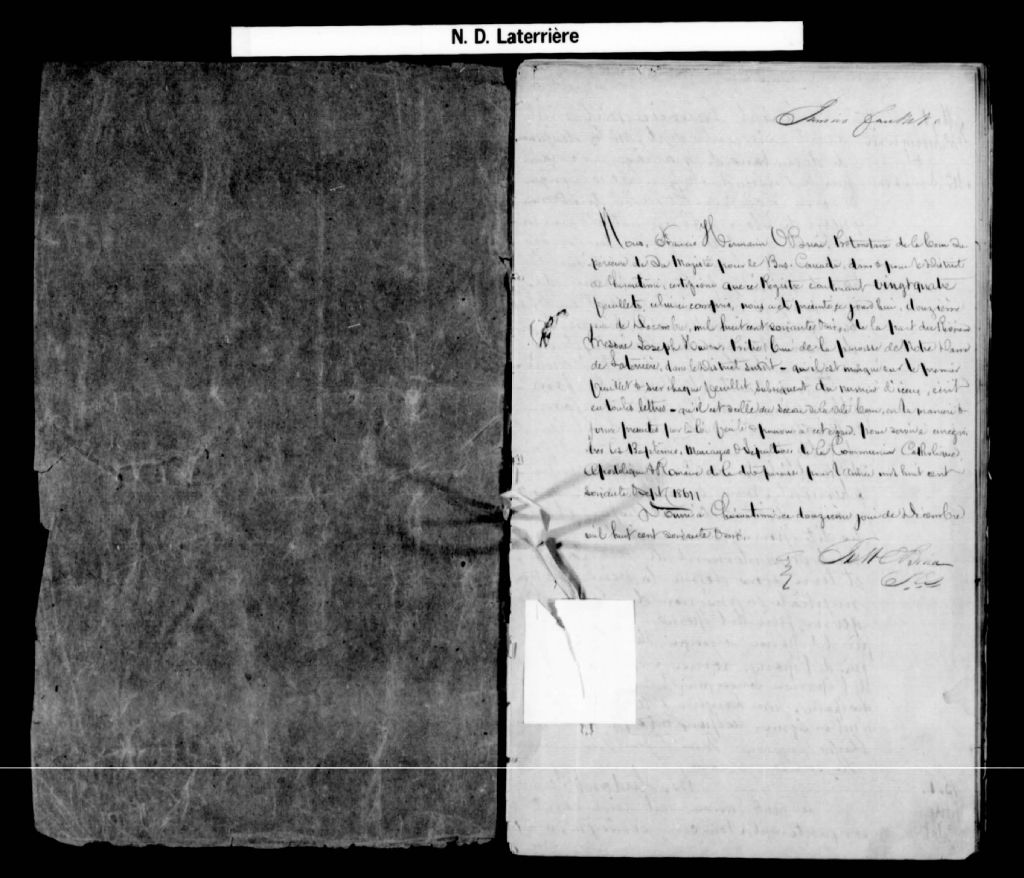 N. D. Laterrière
Premier feuillet
Nous, Francis Hermain O'Brien, Protonotaire de la Cour Su-
périeure de Sa Majesté pour le Bas-Canada, dans & pour le District
de Chicoutimi, certifions que ce Régistre contenant vingtquatre
feuillets, celui-ci compris, nous a été présenté ce jourd'hui, douzième
jour de Décembre, mil huit cent soixante & six, de la part du Révérend
Messire Joseph Prêtre Curé de la paroisse de Notre Dame
de Laterrière, dans le District susdit - qu'il est marqué sur le premier
feuillet & sur chaque feuillet subséquent du numéro d'iceux, écrit
en toutes lettres - qu'il est scellé du sceau de la dite Cour, en la manière &
forme prescrites par la loi à cet égard, pour servir à enrégis-
trer les Baptêmes, Mariages & Sépultures de la Communion Catholique,
Apostolique & Romaine de la dite paroisse, pour l'année mil huit cent
soixante & sept (1867)
Donné à Chicoutimi, ce douzième jour de Décembre
mil huit cent soixante & six.
F. H. O'Brien
P.C.S.